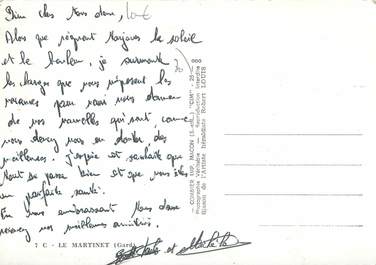 Bien chers tous deux,
Alors que règnent toujours le soleil
et la chaleur, je surmonte
les charges que nous imposent les
vacances pour vous donner
de nos nouvelles qui sont, comme
vous devez vous en douter, des
meilleures. J'espère et souhaite que
tout se passe bien et que vous êtes
en parfaite santé.
En vous embrassant tous deux
recevez nos meilleures amitiés.
et
7 C - LE MARTINET (Gard)
COMBIER IMP. MACON (S.-&-L.) "CIM"
Photographie Véritable - Reproduction Interdite
Robert LOUIS